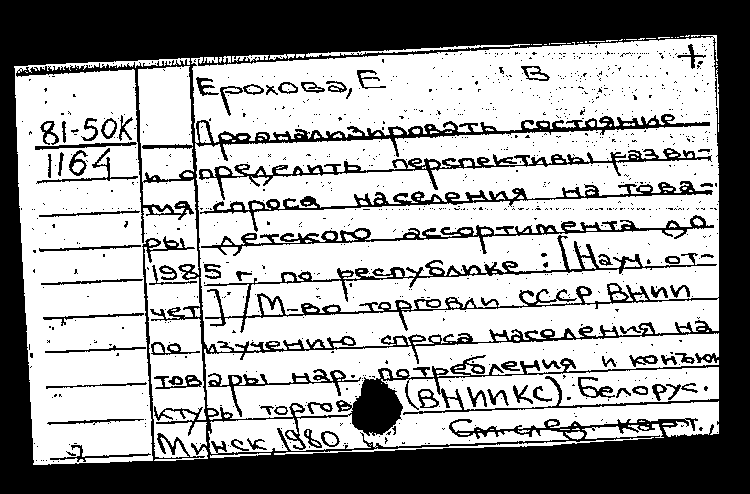 Ерохова, Е В +
81-50К
1164
Проанализировать состояние
и определить перспективы разви-
тия спроса населения на това-
ры детского ассортимента до
1985 г. по республике : [Науч. от-
чет] / М-во торговли СССР, ВНИИ
по изучению спроса населения на
товары нар. потребления и конъюн
ктуры торгов (ВНИИКС). Белорус.
Минск, 1980. См. след. карт.,